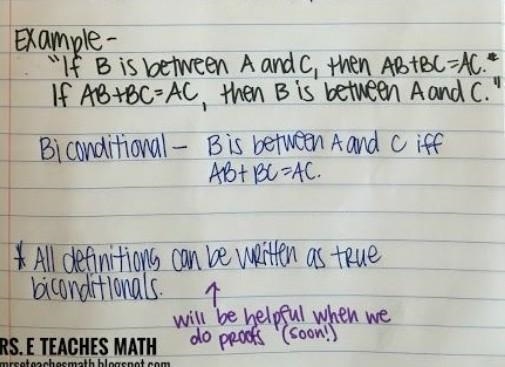 Example-
"If B is between A and C, then AB+BC=AC."
If AB+BC=AC, then B is between A and C."
Biconditional - B is between A and C iff
AB+BC=AC.
* All definitions can be written as true
biconditionals.
will be helpful when we
do proofs (soon!)
RS. E TEACHES MATH
mrseteachesmath.blogspot.com